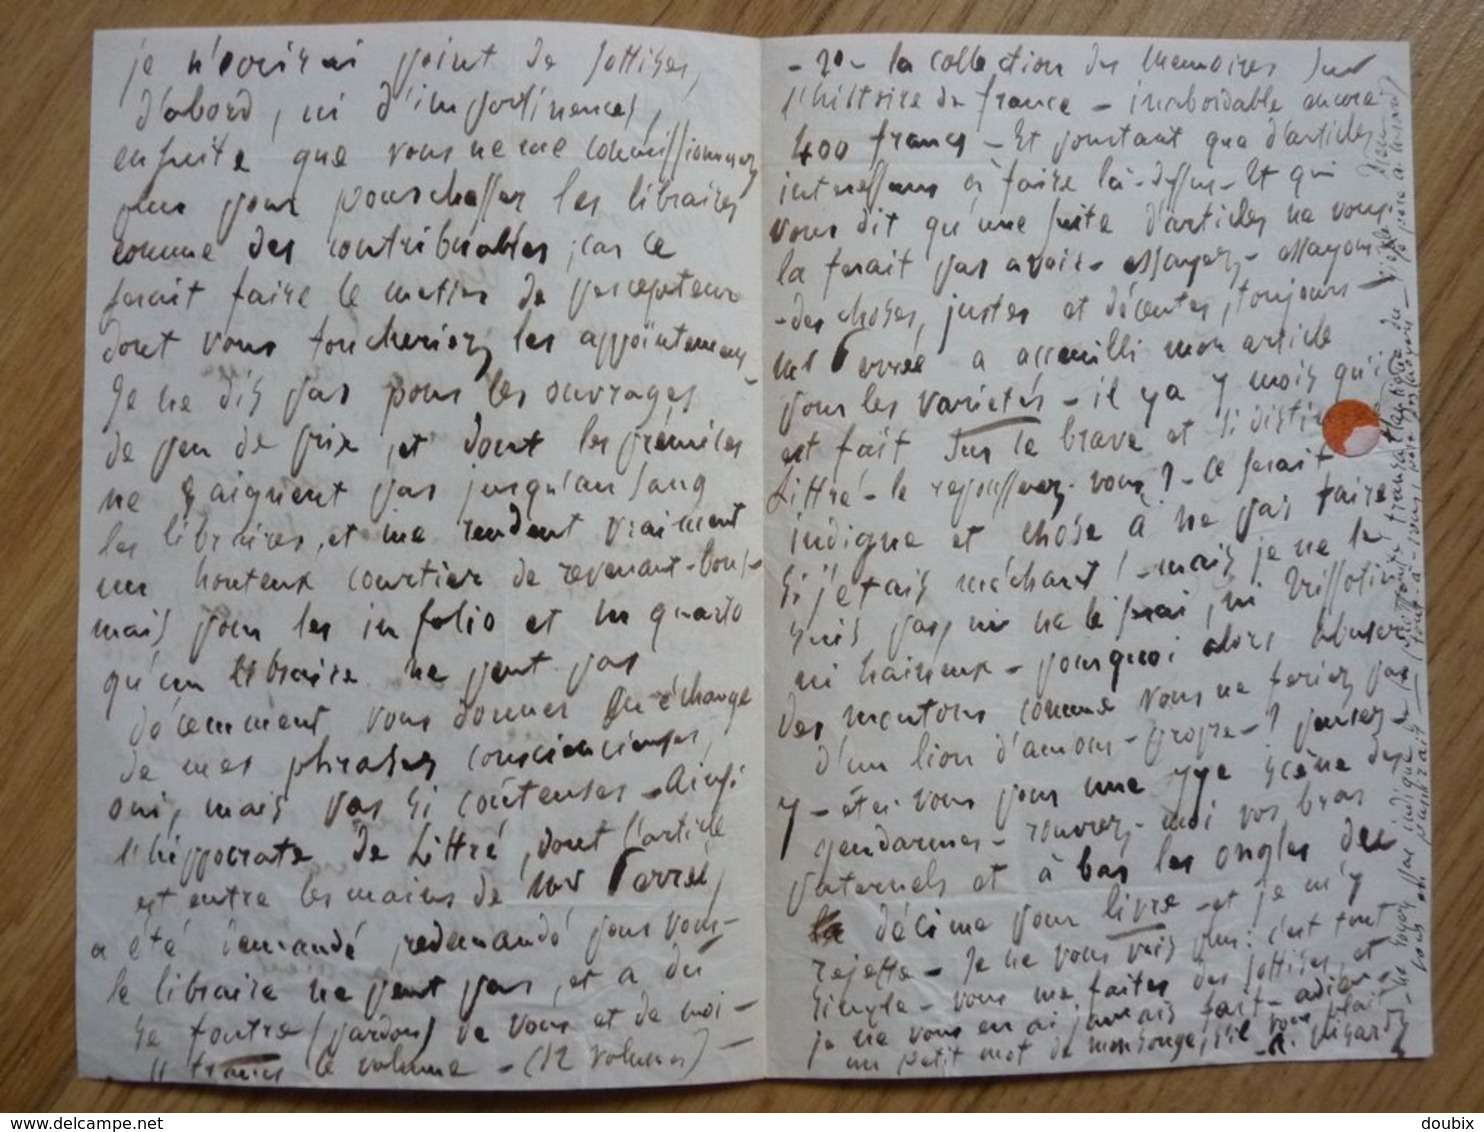 je n'écrirai point de sottises,
d'abord, ni d'impertinences,
ensuite que vous ne me commissionnerez
plus pour pourchasser les libraires
comme des contribuables, car ce
serait faire le metier de percepteur
dont vous toucheriez les appointemens
Je ne dis pas pour les ouvrages
de peu de prix, et dont les prémices
ne saignent pas jusqu'au sang
les libraires, et me rendent vraiment
un honteux courtier de revenant-bons-
mais pour les in folio et in quarto
qu'un libraire ne peut pas
décemment vous donner en échange
de mes phrases consciencieuses,
oui, mais pas si coûteuses - Ainsi
l'hippocrate de Littré, dont l'article
est entre les mains de Mr Perrée,
a été demandé, redemandé pour vous-
le libraire ne peut pas, et a du
se foutre (pardon) de vous et de moi -
11 francs le volume - (12 volumes) -
- 2o - la collection des Memoires sur
l'histoire de france - inabordable encore
400 francs - Et pourtant que d'articles
interessans à faire là-dessus - Et qui
vous dit qu'une suite d'articles ne vous
la ferait pas avoir - essayez - essayons
- des choses, justes et décentes, toujours -
Mr Perrée a accueilli mon article
pour les variétés - il y a 7 mois qu'il
est fait sur le brave et si
Littré - le repousserez-vous ? - Ce serait
indigne et chose à ne pas faire
si j'étais méchant ! - mais je ne le
suis pas, ni ne le serai, ni Trissotin
ni haineux - pourquoi alors abuser
des moutons comme vous ne feriez pas
d'un lion d'amour-propre - ? pensez-
y - êtes vous pour une scène des
gendarmes - rouvrez-moi vos bras
paternels et à bas les ongles de
la décime pour livre - et je m'y
rejette - Je ne vous vois plus : c'est tout
simple - vous me faites des sottises, et
je ne vous en ai jamais fait - adieu -
un petit mot de mensonge, s'il vous plait
www.delcampe.net
doubix